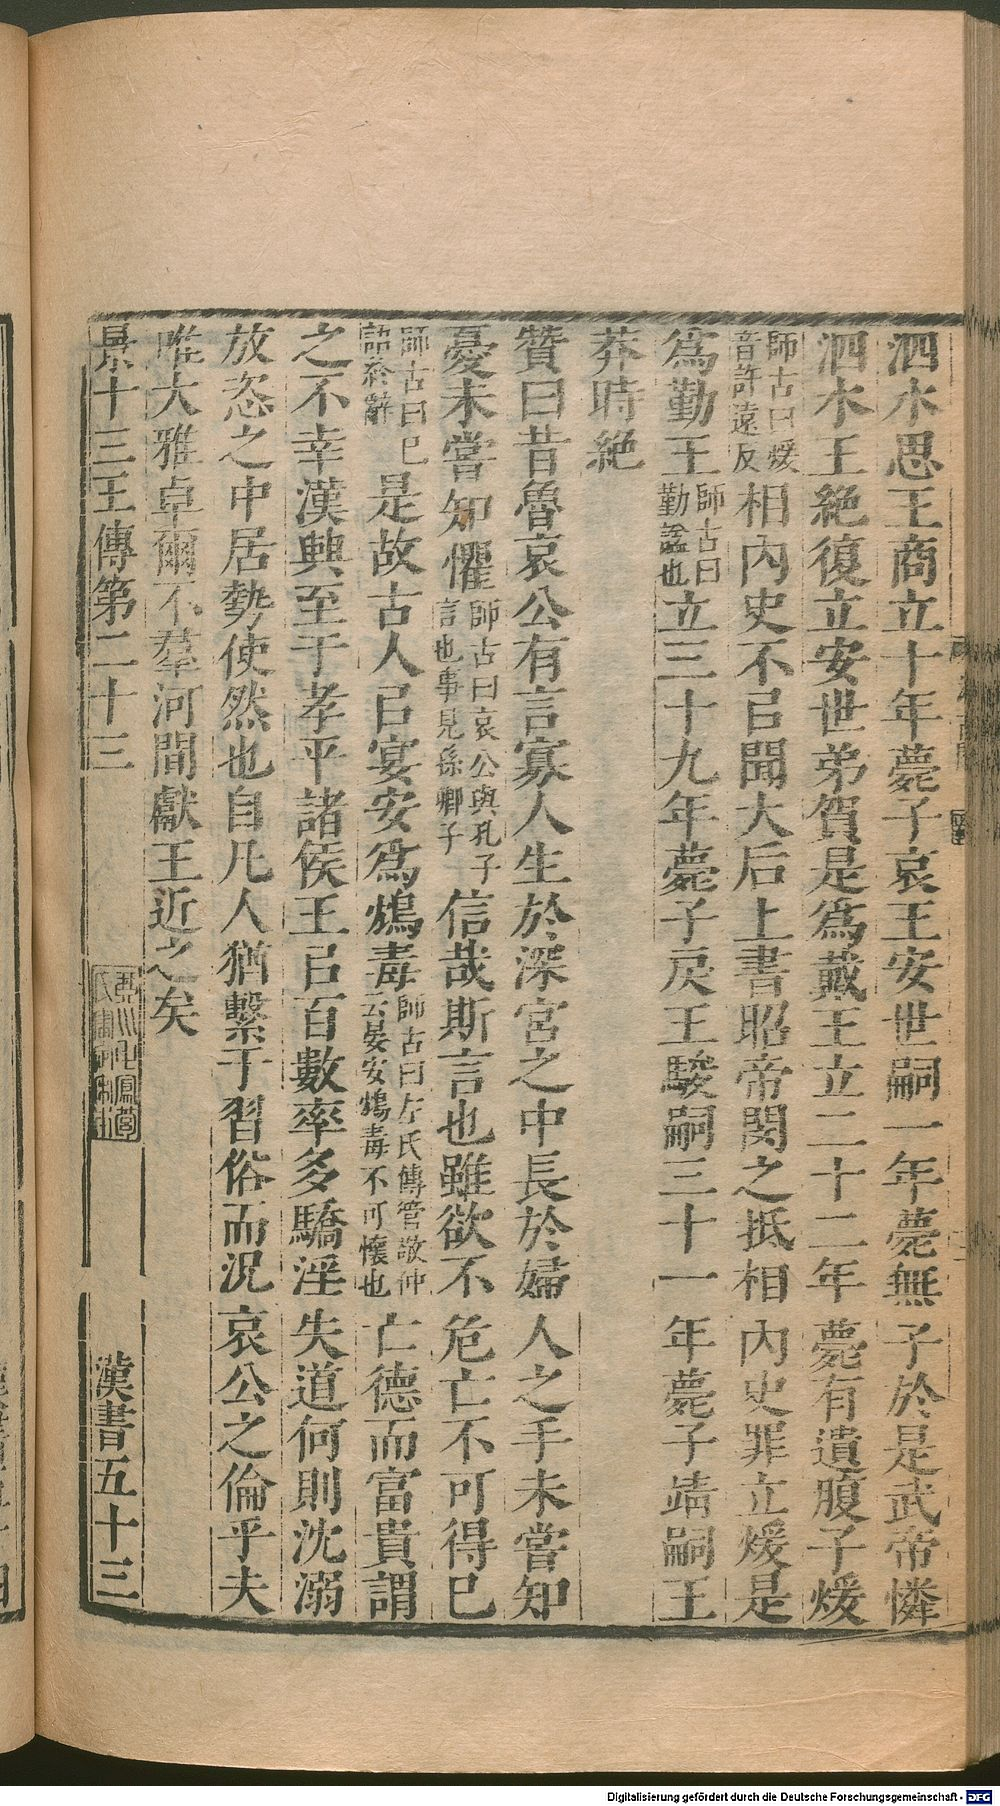 泗水思王商立十年薨子哀王安世嗣一年薨無子於是武帝憐
泗水王絶復立安世弟賀是爲戴王立二十二年薨有遺腹子煖
師古曰煖
音許遠反
相內史不㠯聞大后上書昭帝閔之抵相內史罪立煖是
爲勤王
師古曰
勤謚也
立三十九年薨子戾王駿嗣三十一年薨子靖嗣王
莽時絶
贊曰昔魯哀公有言寡人生於深宮之中長於婦人之手未嘗知
憂未嘗知懼
師古曰哀公與孔子
言也事見孫卿子
信哉斯言也雖欲不危亡不可得已
師古曰已
語終辭
是故古人㠯宴安爲鴆毒
師古曰左氏傳管敬仲
云晏安鴆毒不可懷也
亡德而富貴謂
之不幸漢興至于孝平諸侯王㠯百數率多驕淫失道何則沈溺
放恣之中居勢使然也自凡人猶繫于習俗而況哀公之倫乎夫
唯大雅卓爾不羣河間獻王近之矣
景十三王傳第二十三
漢書五十三
Digitalisierung gefördert durch die Deutsche Forschungsgemeinschaft - DFG